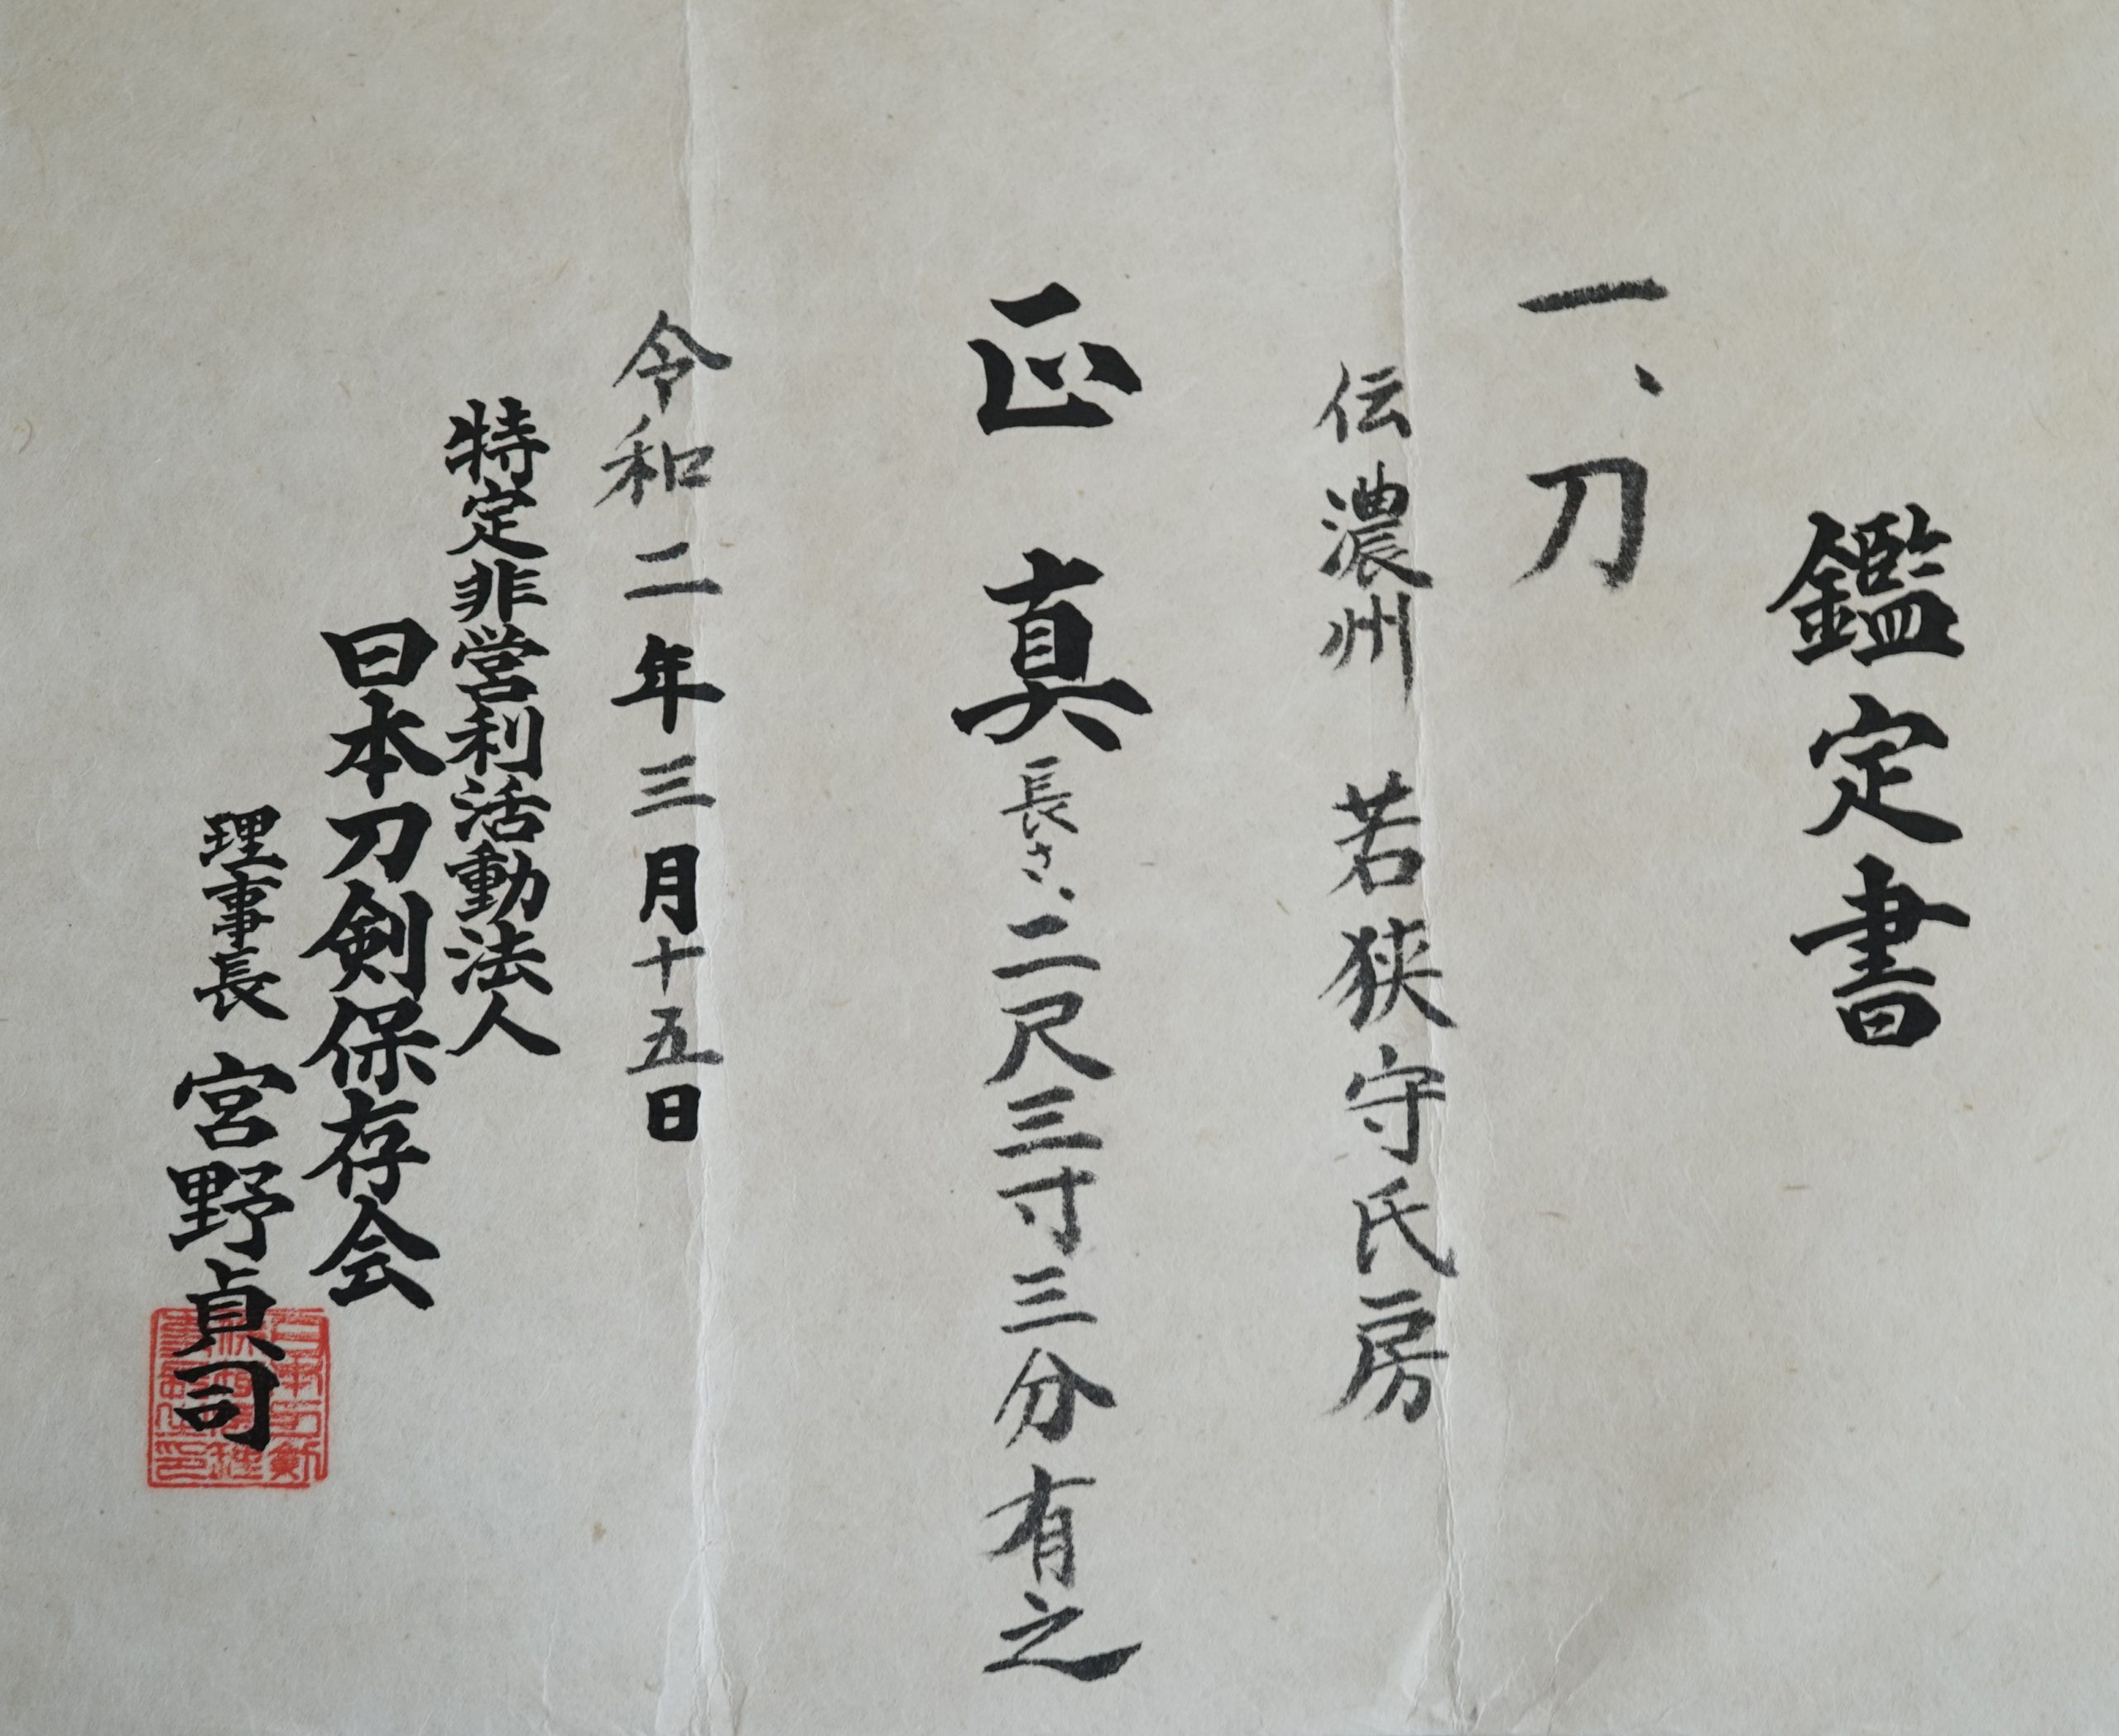 鑑定書
一、刀
伝濃州 若狭守氏房
正真 長さ、二尺三寸三分有之
令和二年三月十五日
特定非営利活動法人
日本刀剣保存会
理事長 宮野貞司